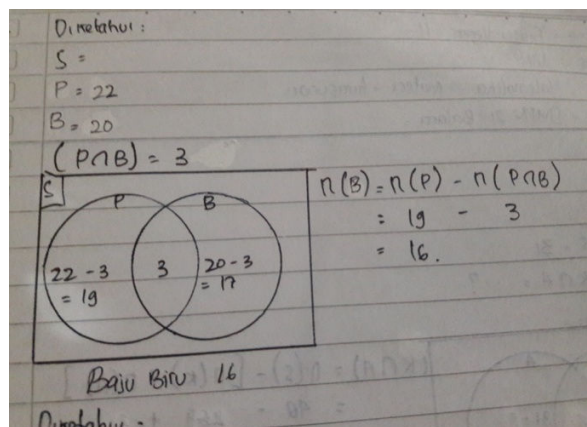 Diketahui :
S =
P = 22
B = 20
(P∩B) = 3
S
P B
22 - 3
= 19
3
20 - 3
= 17
n(B) = n(P) - n(P∩B)
= 19 - 3
= 16.
Baju Biru 16
Diketahui :